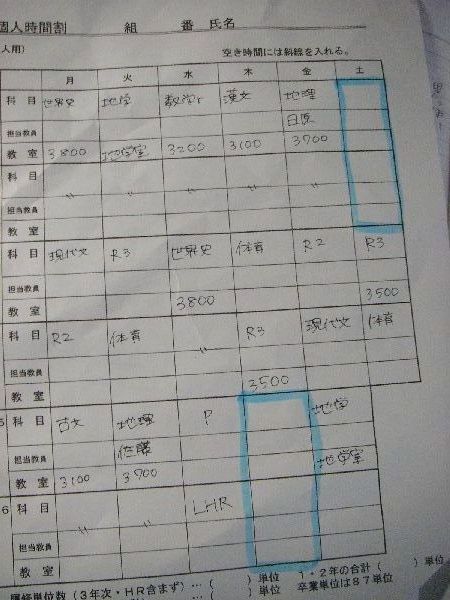 個人時間割 組 番 氏名
人用) 空き時間には斜線を入れる。
月 火 水 木 金 土
科目 世界史 地学 数学r 漢文 地理
担当教員 日原
教室 3800 地学室 3200 3100 3700
科目 〃 〃 〃 〃 〃
担当教員
教室
科目 現代文 R3 世界史 体育 R2 R3
担当教員
教室 3800 3500
科目 R2 体育 〃 R3 現代文 体育
担当教員
教室 3500
5 科目 古文 地理 P 地学
担当教員 佐藤
教室 3100 3700 地学室
6 科目 〃 〃 LHR 〃
担当教員
教室
履修単位数(3年次・HR含まず)…( )単位 1・2年の合計(
…( )単位 卒業単位は87単位